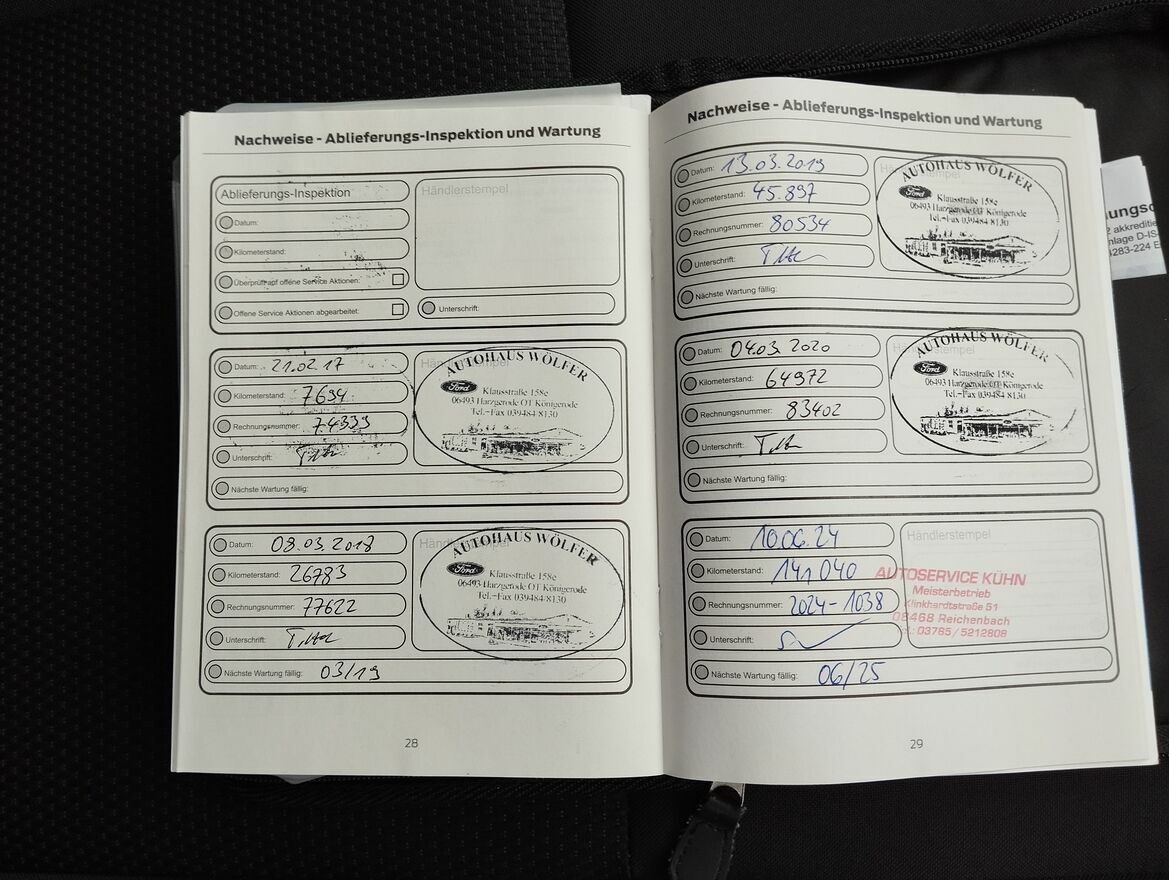 Nachweise - Ablieferungs-Inspektion und Wartung
Ablieferungs-Inspektion
Händlerstempel
Datum:
Kilometerstand:
Überprüft auf offene Service Aktionen:
Offene Service Aktionen abgearbeitet:
Unterschrift:
Datum: 21.02.17
Kilometerstand: 7694
Rechnungsnummer: 74339
Unterschrift:
Nächste Wartung fällig:
AUTOHAUS WÖLFER
Ford
Klausstraße 158e
06493 Harzgerode OT Königerode
Tel.-Fax 039484 8130
Datum: 08.03.2018
Kilometerstand: 26783
Rechnungsnummer: 77622
Unterschrift:
Nächste Wartung fällig: 03/19
AUTOHAUS WÖLFER
Ford
Klausstraße 158e
06493 Harzgerode OT Königerode
Tel.-Fax 039484 8130
28
Nachweise - Ablieferungs-Inspektion und Wartung
Datum: 13.03.2019
Kilometerstand: 45.897
Rechnungsnummer: 80534
Unterschrift:
Nächste Wartung fällig:
AUTOHAUS WÖLFER
Ford
Klausstraße 158e
06493 Harzgerode OT Königerode
Tel.-Fax 039484 8130
Datum: 04.03.2020
Kilometerstand: 64972
Rechnungsnummer: 83402
Unterschrift:
Nächste Wartung fällig:
Händlerstempel
AUTOHAUS WÖLFER
Ford
Klausstraße 158e
06493 Harzgerode OT Königerode
Tel.-Fax 039484 8130
Datum: 10.06.24
Kilometerstand: 141 040
Rechnungsnummer: 2024-1038
Unterschrift:
Nächste Wartung fällig: 06/25
Händlerstempel
AUTOSERVICE KÜHN
Meisterbetrieb
Klinkhardtstraße 51
08468 Reichenbach
Tel.: 03765 / 5212808
29